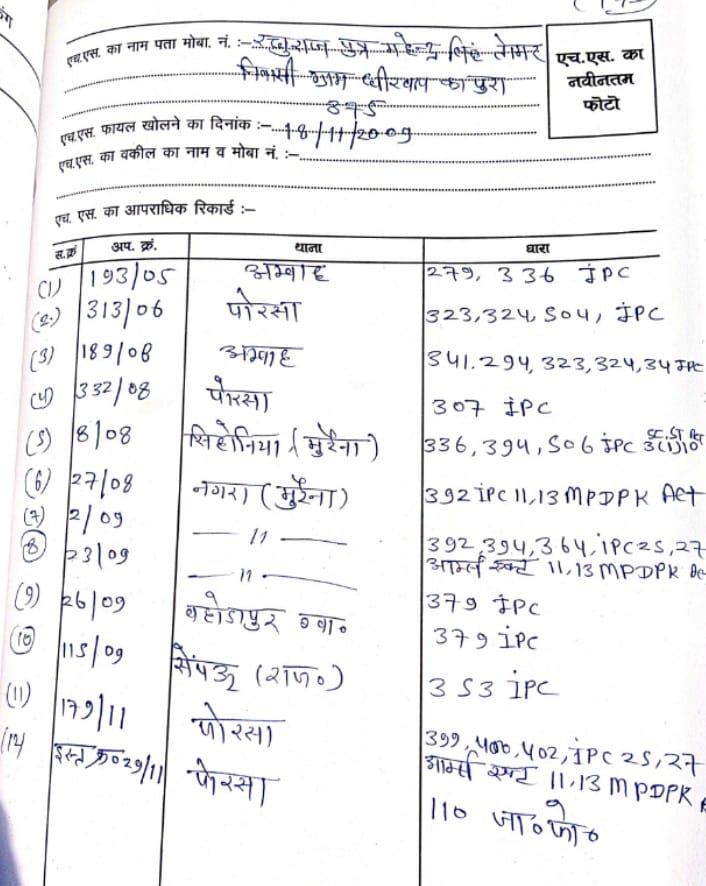 एच.एस. का नाम पता मोबा. नं. :– रघुराज पुत्र महेन्द्र सिंह तोमर
निवासी ग्राम धीरबाप का पुरा
375
एच.एस. का
नवीनतम
फोटो
एच.एस. फायल खोलने का दिनांक :– 18/11/2009
एच.एस. का वकील का नाम व मोबा नं. :–
एच. एस. का आपराधिक रिकार्ड :–
स.क्रं अप. क्रं. थाना धारा
(1) 193/05 अम्बाह 279, 336 IPC
(2) 313/06 पोरसा 323,324,504, IPC
(3) 189/08 अम्बाह 341.294,323,324,34 IPC
(4) 332/08 पोरसा 307 IPC
(5) 8/08 सिहोनिया (मुरैना) 336,394,506 IPC 3(1)10 SC,ST Act
(6) 27/08 नगरा (मुरैना) 392 IPC 11,13 MPDPK Act
(7) 2/09 — 11 — 392,394,364,IPC 25,27
आर्म्स एक्ट 11,13 MPDPK Ac
(8) 23/09 — 11 — 379 IPC
(9) 26/09 बहोडापुर ग्वा० 379 IPC
(10) 115/09 सेंपऊ (राज०) 353 IPC
(11) 179/11 पोरसा 399,400,402,IPC 25,27
आर्म्स एक्ट 11,13 MPDPK A
(12) इस्त०क्र०29/11 पोरसा 110 जा०फो०